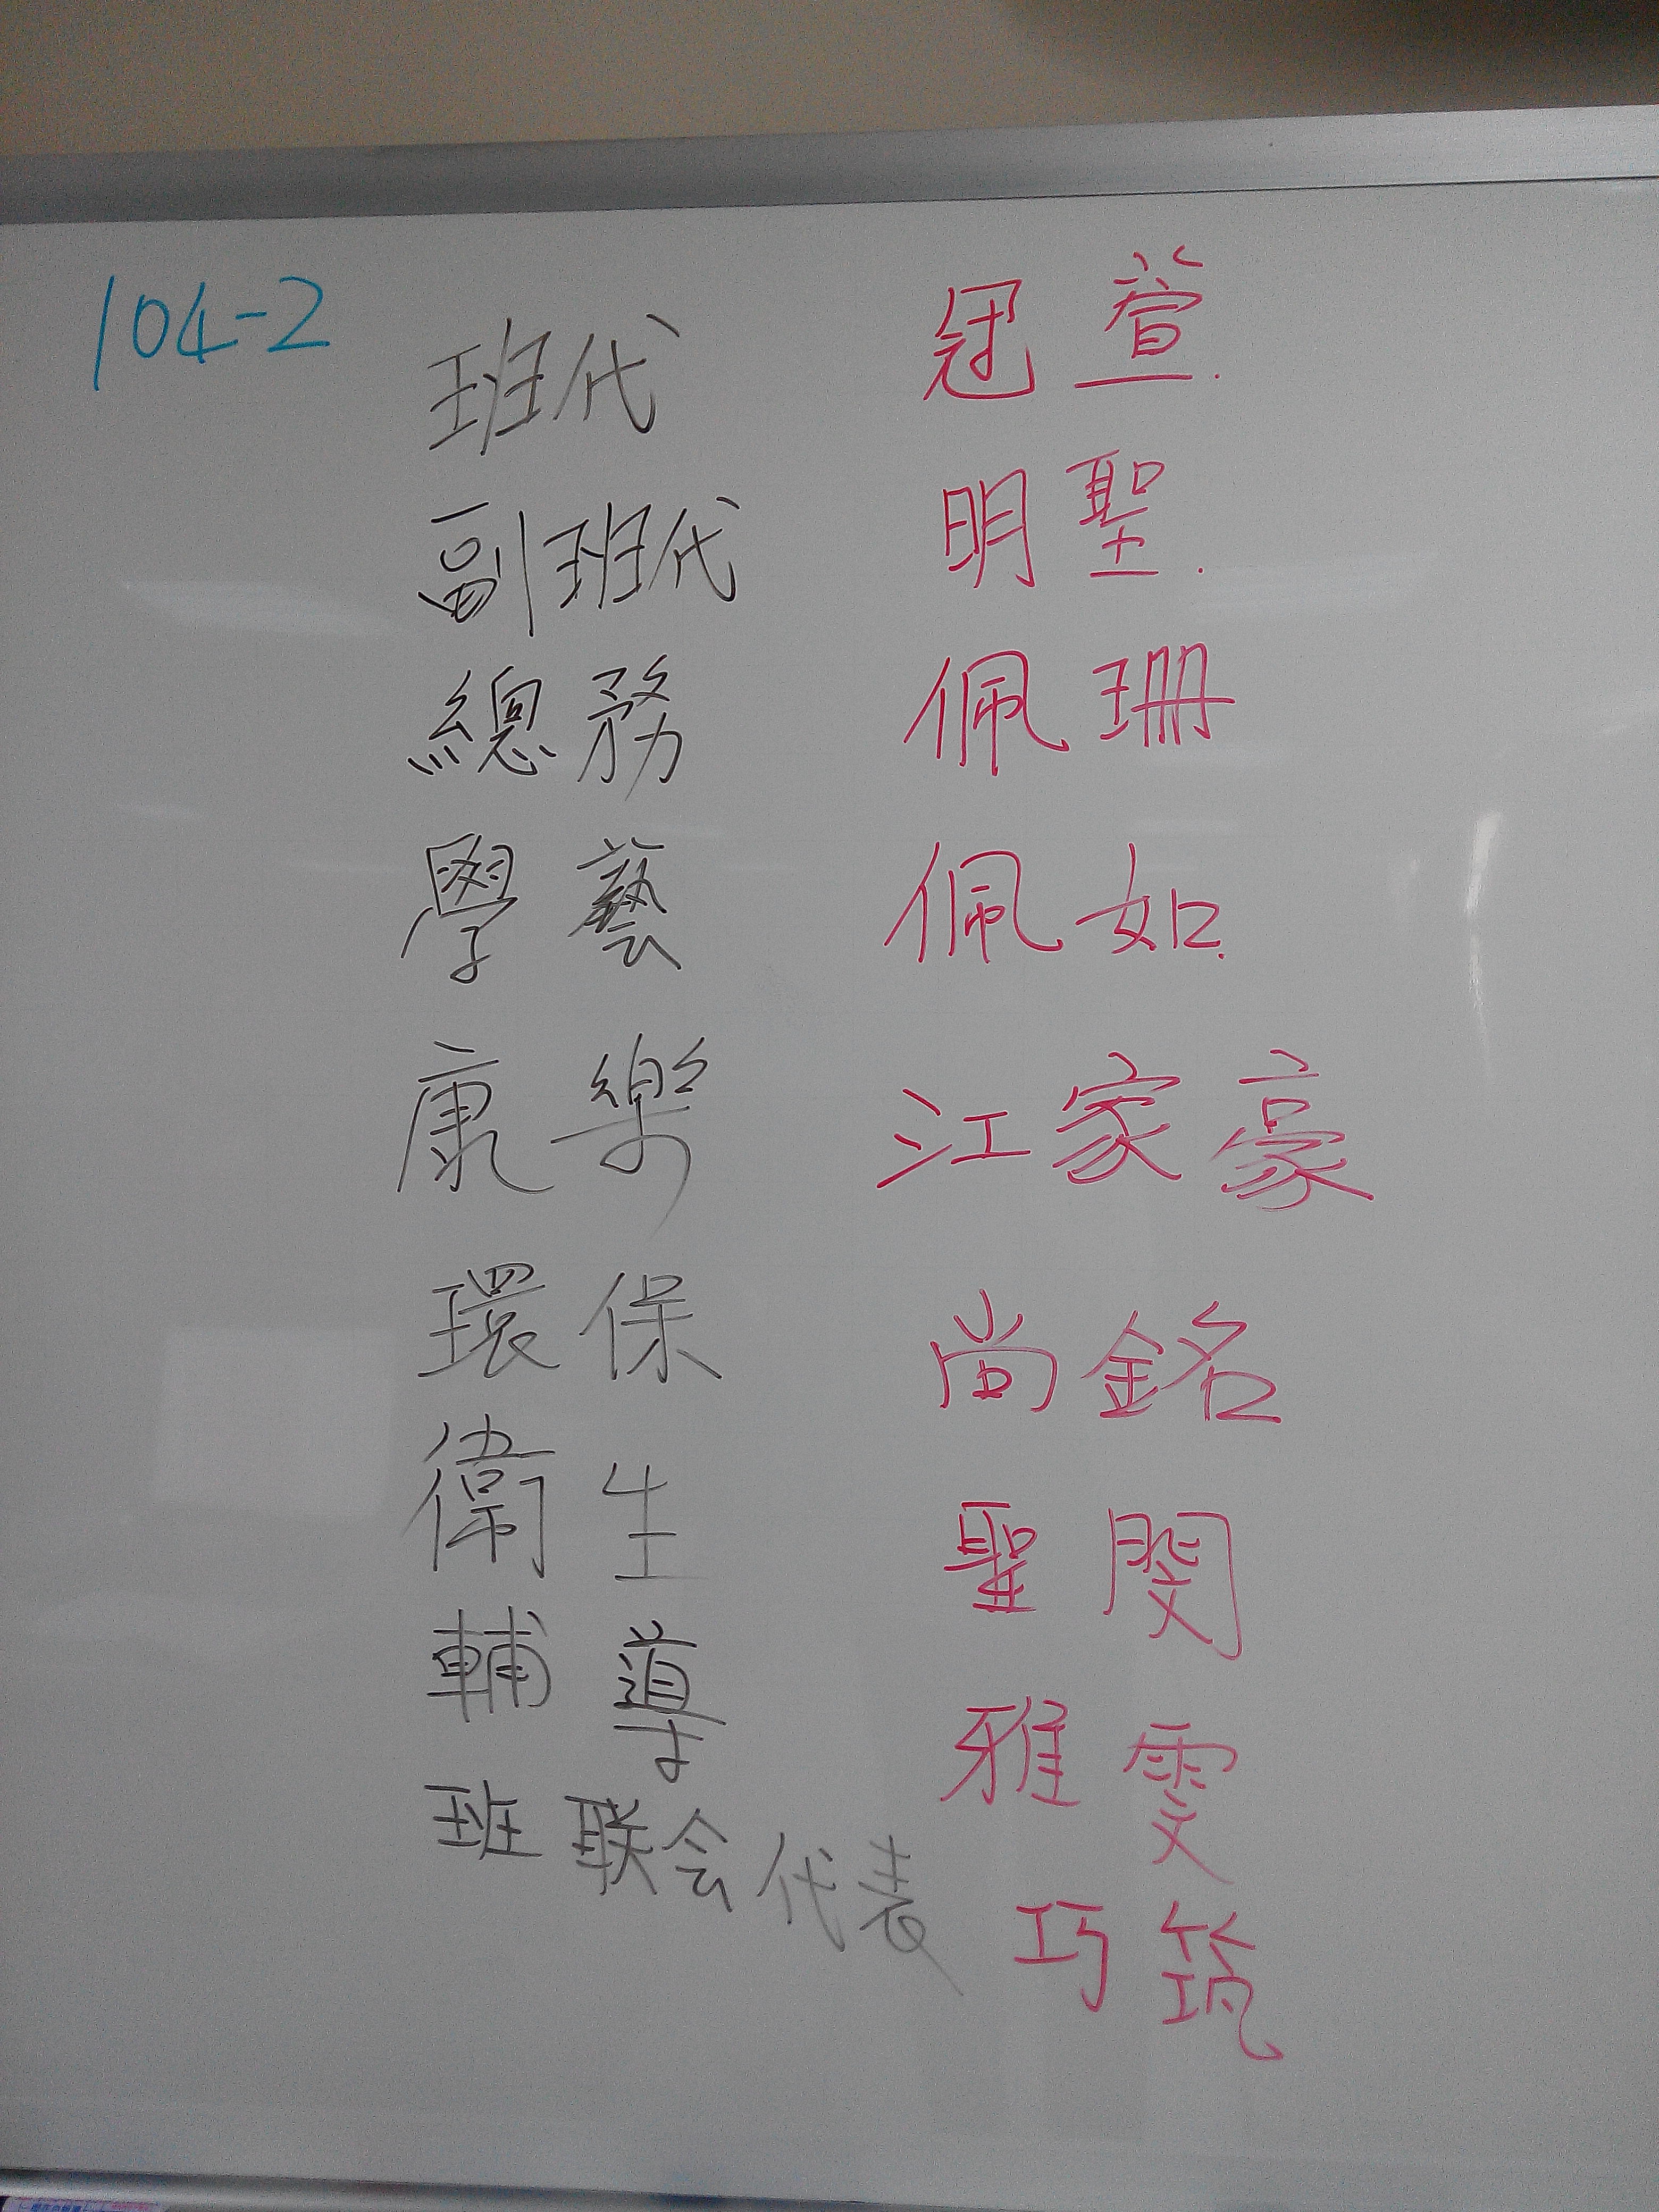 104-2
班代 冠萱.
副班代 明聖.
總務 佩珊
學藝 佩如.
康樂 江家豪
環保 尚銘
衛生 聖閔
輔導 雅雯
班联会代表 巧筑